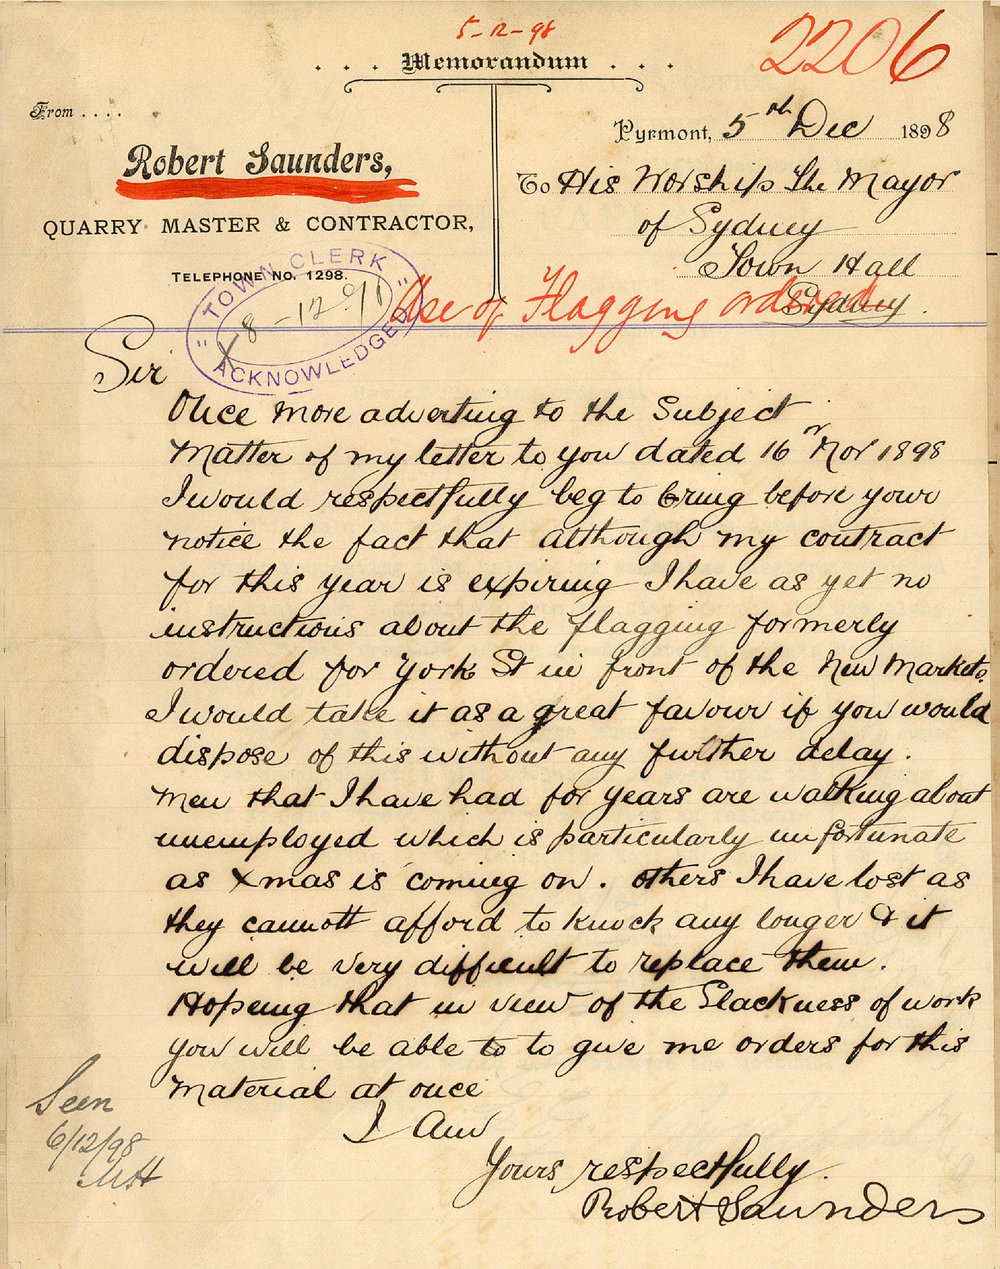 5-12-98
. . . Memorandum . . .
2206
From . . . .
Pyrmont, 5th Dec 1898
Robert Saunders,
To His Worship The Mayor
QUARRY MASTER & CONTRACTOR,
of Sydney
TELEPHONE NO. 1298.
Town Hall
Sydney.
"TOWN CLERK"
8-12-9
ACKNOWLEDGED
Use of Flagging ordered
Sir
Once more adverting to the Subject
Matter of my letter to you dated 16 Nov 1898
I would respectfully beg to bring before your
notice the fact that although my contract
for this year is expiring I have as yet no
instructions about the flagging formerly
ordered for York St in front of the New Markets.
I would take it as a great favour if you would
dispose of this without any further delay.
Men that I have had for years are walking about
unemployed which is particularly unfortunate
as Xmas is coming on. others I have lost as
they cannott afford to knock any longer & it
will be very difficult to replace them.
Hopeing that in view of the Slackness of work
you will be able to to give me orders for this
Material at once
I Am
Yours respectfully.
Robert Saunders
Seen
6/12/98